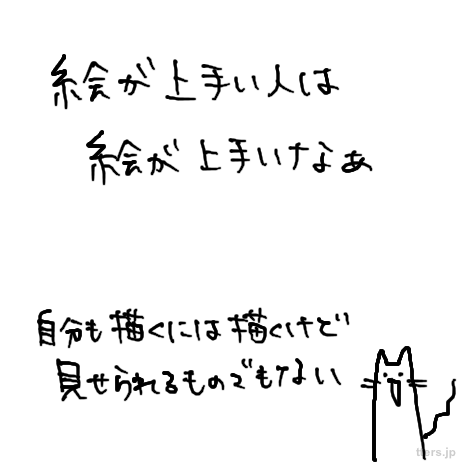 絵が上手い人は
絵が上手いなぁ
自分も描くには描くけど
見せられるものでもない
tters.jp